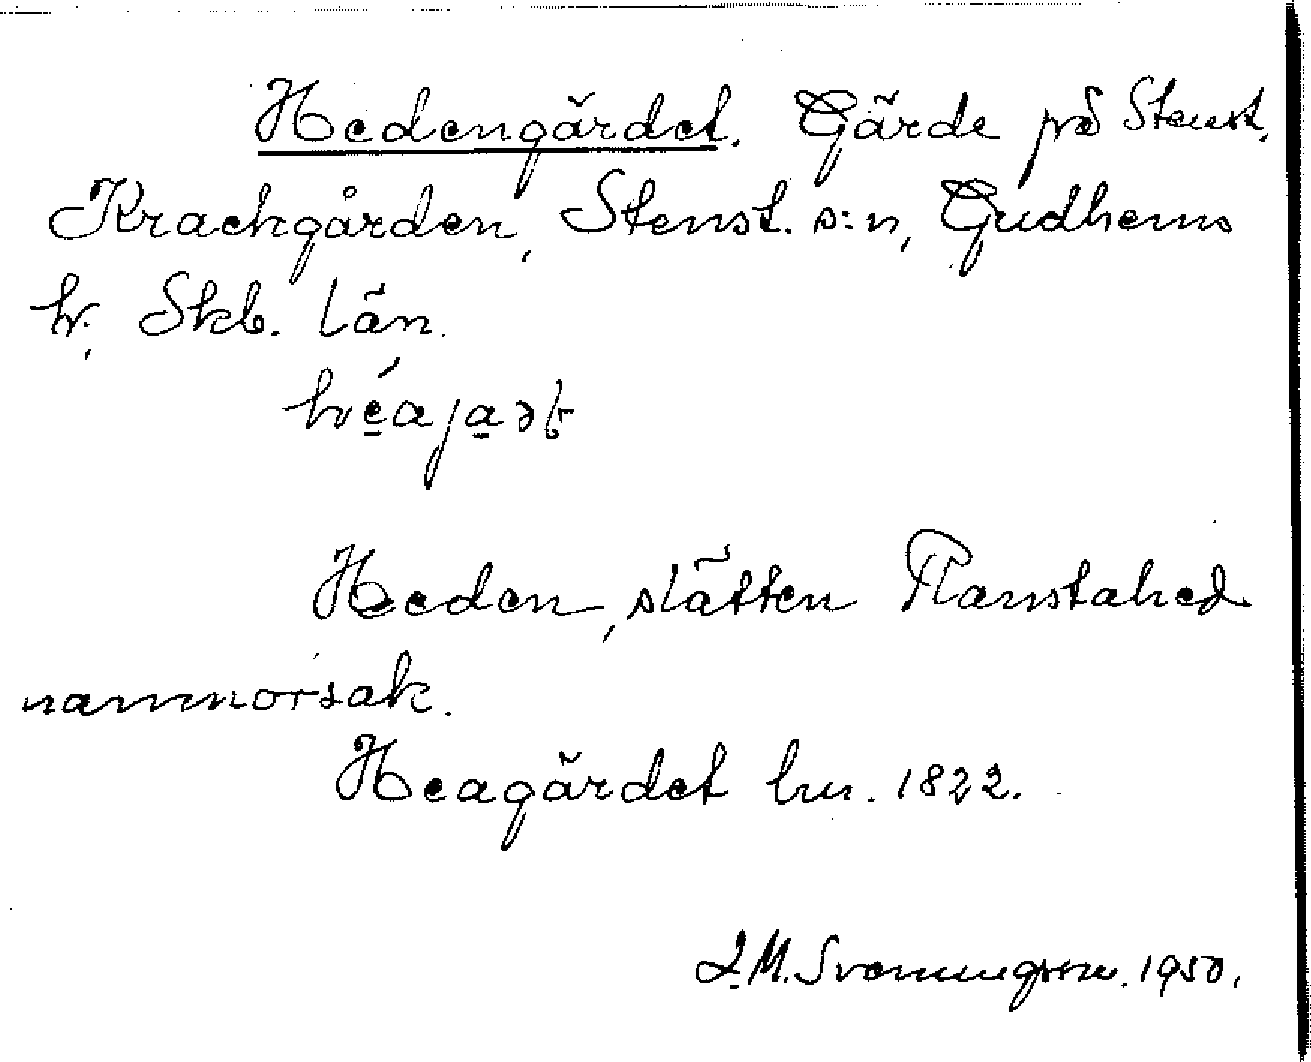 Hedengärdet. Gärde på Stenst.
Krackgården, Stenst. s:n, Gudhems
hr. Skb. län.
Heden, slätten Ranstahed
namnorsak.
Heagärdet lm. 1822.
1950.